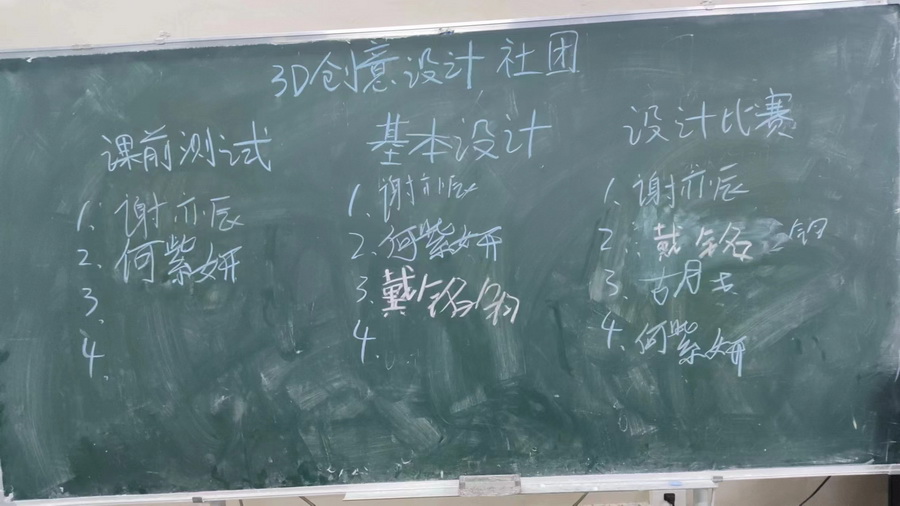 3D创意设计社团
课前测试
1. 谢亦辰
2. 何紫妍
3.
4.
基本设计
1. 谢亦辰
2. 何紫妍
3. 戴铭
4.
设计比赛
1. 谢亦辰
2. 戴铭
3. 胡
4. 何紫妍